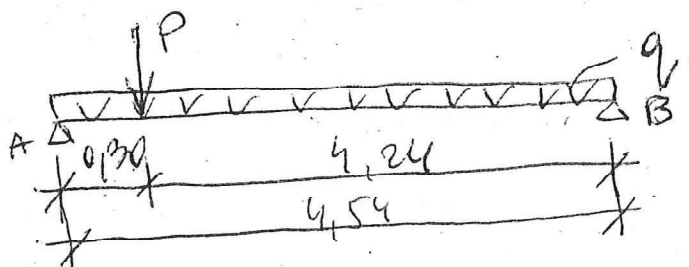 P
q
A
B
0,30
4,24
4,54